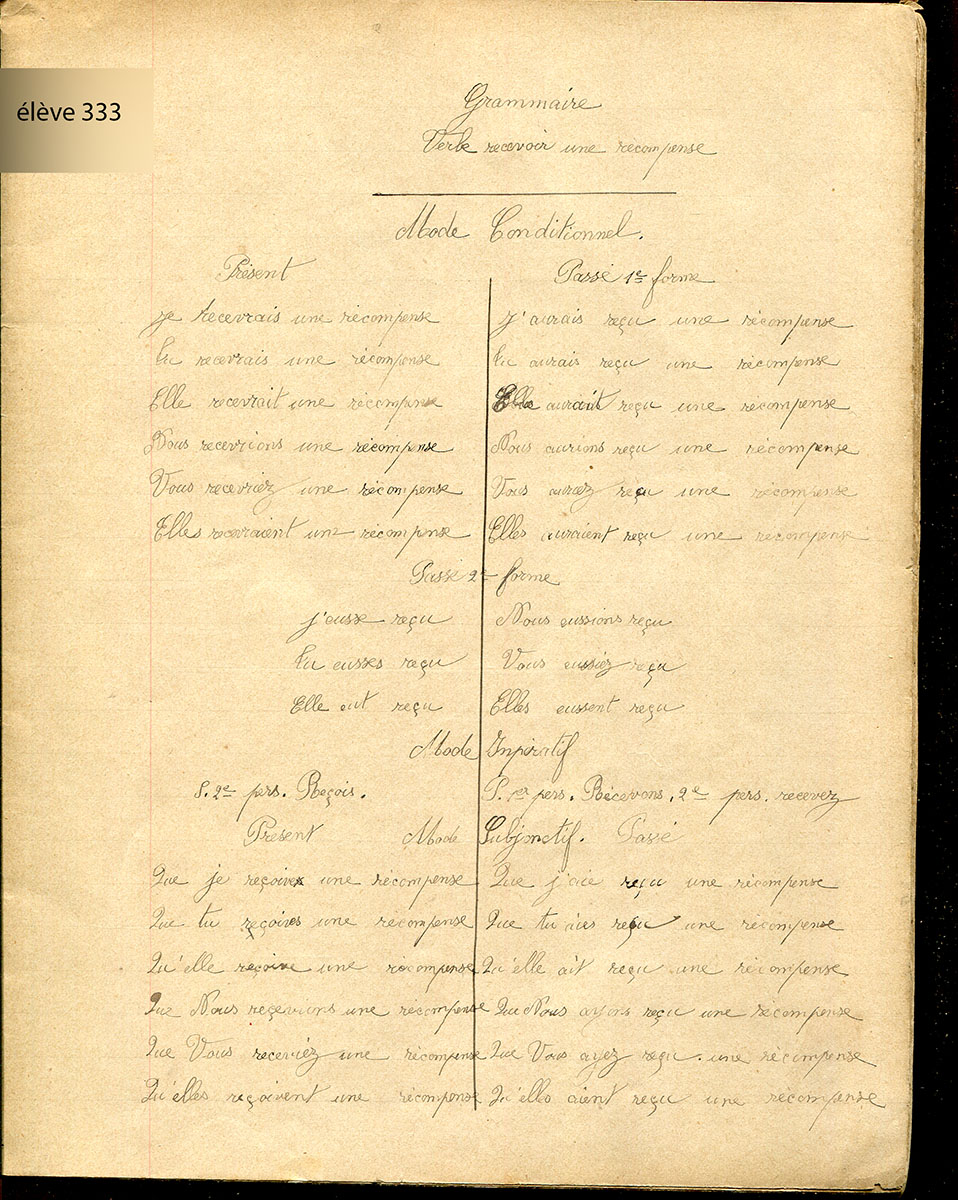 élève 333
Grammaire
Verbe recevoir une récompense
Mode Conditionnel.
Présent
je recevrais une récompense
tu recevrais une récompense
Elle recevrait une récompense
Nous recevrions une récompense
Vous recevriez une récompense
Elles recevraient une récompense
Passé 1re forme
j'aurais reçu une récompense
tu aurais reçu une récompense
Elle aurait reçu une récompense
Nous aurions reçu une récompense
Vous auriez reçu une récompense
Elles auraient reçu une récompense
Passé 2e forme
j'eusse reçu
tu eusses reçu
Elle eut reçu
Nous eussions reçu
Vous eussiez reçu
Elles eussent reçu
Mode Inpiratif
S. 2e pers. Reçois.
P. 1er pers. Récevons, 2e pers. recevez
Présent Mode Subjontif. Passé
Que je reçoive une récompense
Que tu reçoives une récompense
Qu'elle reçoive une récompense
Que Nous reçevions une récompense
Que Vous receviéz une récompense
Qu'elles reçoivent une récompense
Que j'aie reçu une récompense
Que tu aies reçu une récompense
Qu'elle ait reçu une récompense
Que Nous ayons reçu une récompense
Que Vous ayez reçu une récompense
Qu'elles aient reçu une récompense